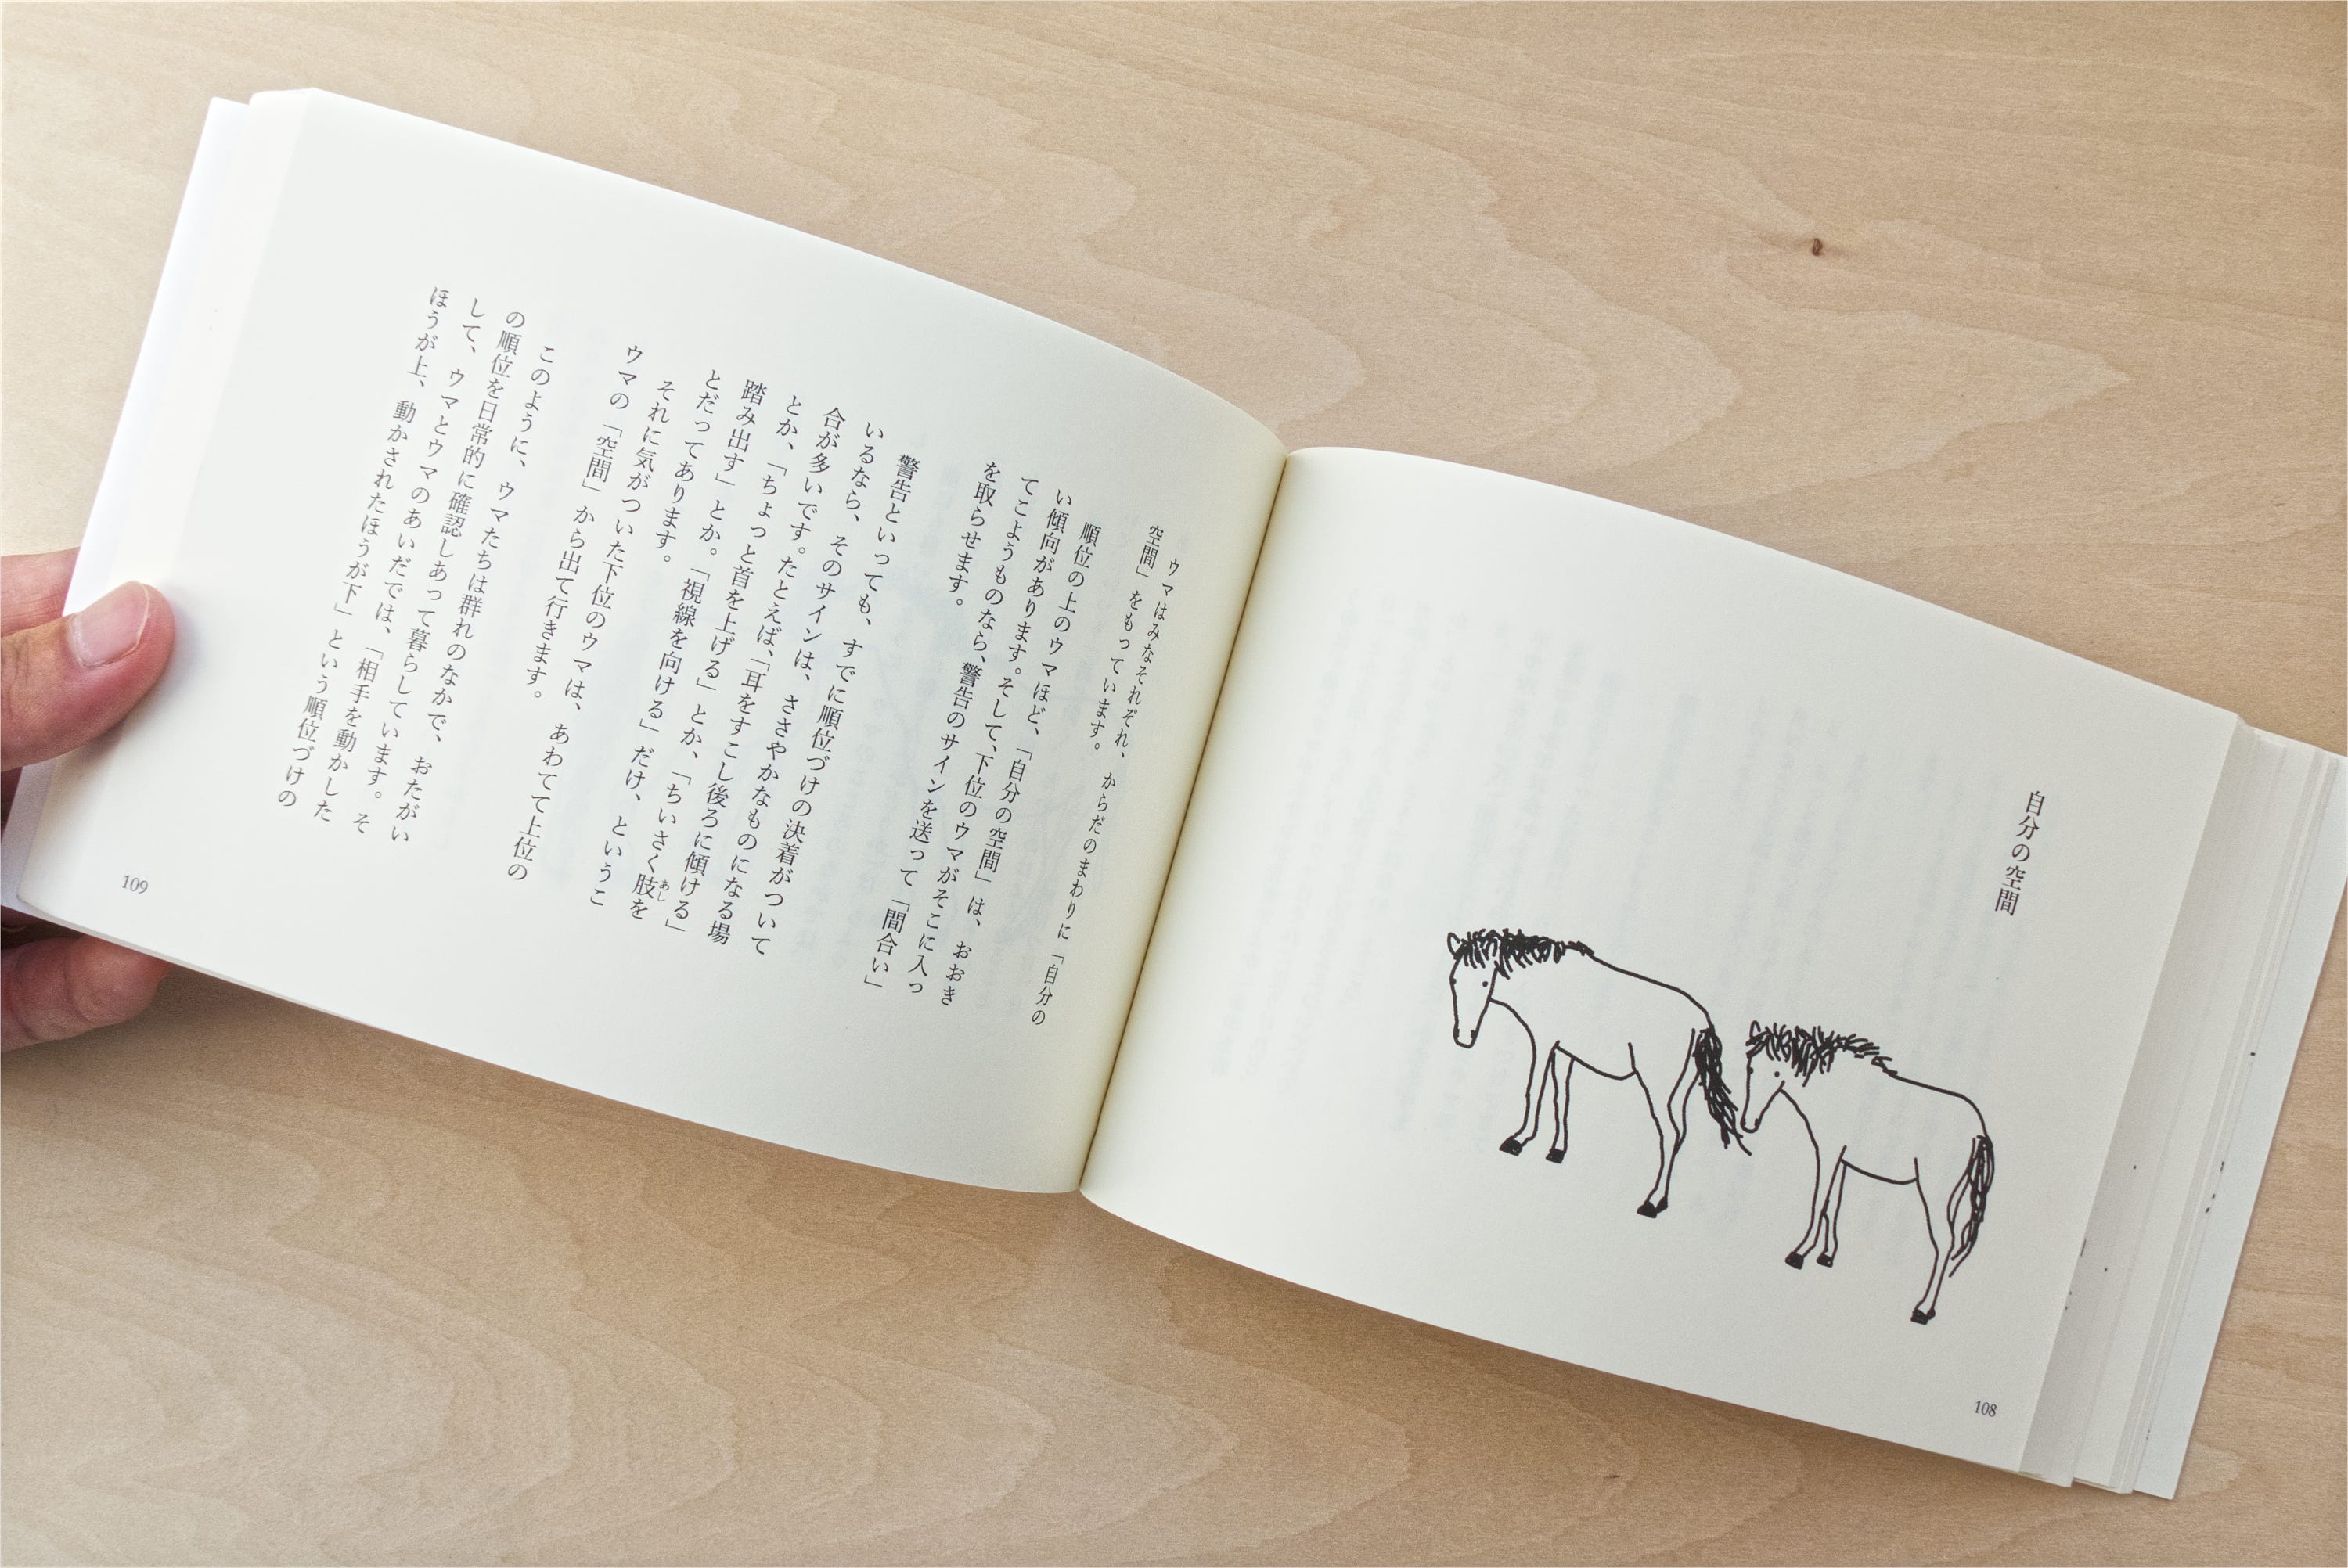 自分の空間
108
ウマはみなそれぞれ、からだのまわりに「自分の
空間」をもっています。
順位の上のウマほど、「自分の空間」は、おおき
い傾向があります。そして、下位のウマがそこに入っ
てこようものなら、警告のサインを送って「間合い」
を取らせます。
警告といっても、すでに順位づけの決着がついて
いるなら、そのサインは、ささやかなものになる場
合が多いです。たとえば、「耳をすこし後ろに傾ける」
とか、「ちょっと首を上げる」とか、「ちいさく肢あしを
踏み出す」とか。「視線を向ける」だけ、というこ
とだってあります。
それに気がついた下位のウマは、あわてて上位の
ウマの「空間」から出て行きます。
このように、ウマたちは群れのなかで、おたがい
の順位を日常的に確認しあって暮らしています。そ
して、ウマとウマのあいだでは、「相手を動かした
ほうが上、動かされたほうが下」という順位づけの
109